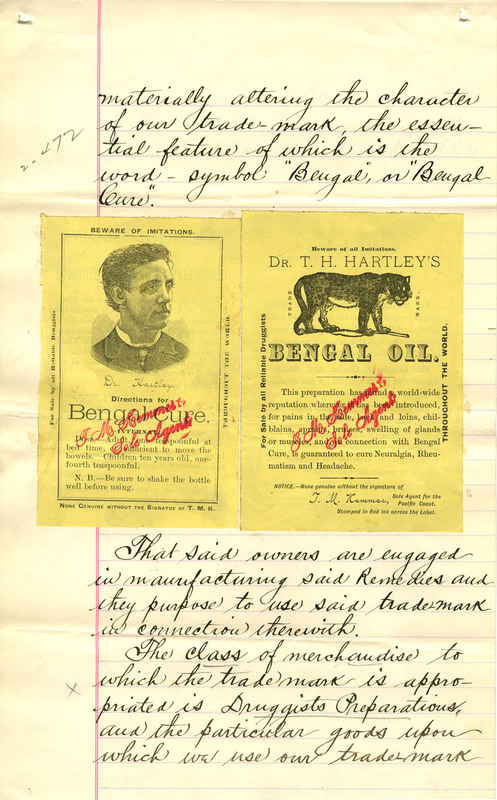 materially altering the character
of our trade-mark, the essen-
tial feature of which is the
word-symbol "Bengal", or "Bengal
Cure".
2-472
BEWARE OF IMITATIONS.
For Sale by all Reliable Druggists
THROUGHOUT THE WORLD.
Dr. Hartley.
Directions for
Bengal Cure.
INTERNAL
Dose: Adults, teaspoonful at
bed time, sufficient to move the
bowels. Children ten years old, one-
fourth teaspoonful.
N. B.—Be sure to shake the bottle
well before using.
NONE GENUINE WITHOUT THE SIGNATUE OF T. M. K.
T. M. Kemmer
Sole Agent
Beware of all Imitations.
DR. T. H. HARTLEY'S
TRADE MARK.
BENGAL OIL.
For Sale by all Reliable Druggists
THROUGHOUT THE WORLD.
This preparation has a world-wide
reputation wherever it has been introduced,
for pains in the side, back and loins, chil-
blains, sprains, bruises, swelling of glands
or muscle, and in connection with Bengal
Cure, is guaranteed to cure Neuralgia, Rheu-
matism and Headache.
NOTICE.—None genuine without the signature of
T. M. Kemmer, Sole Agent for the
Pacific Coast.
Stamped in Red Ink across the Label.
T. M. Kemmer
Sole Agent
That said owners are engaged
in manufacturing said Remedies and
they purpose to use said trade-mark
in connection therewith.
The class of merchandise to
x which the trade mark is appro-
priated is Druggists Preparations,
and the particular goods upon
which we use our trade-mark